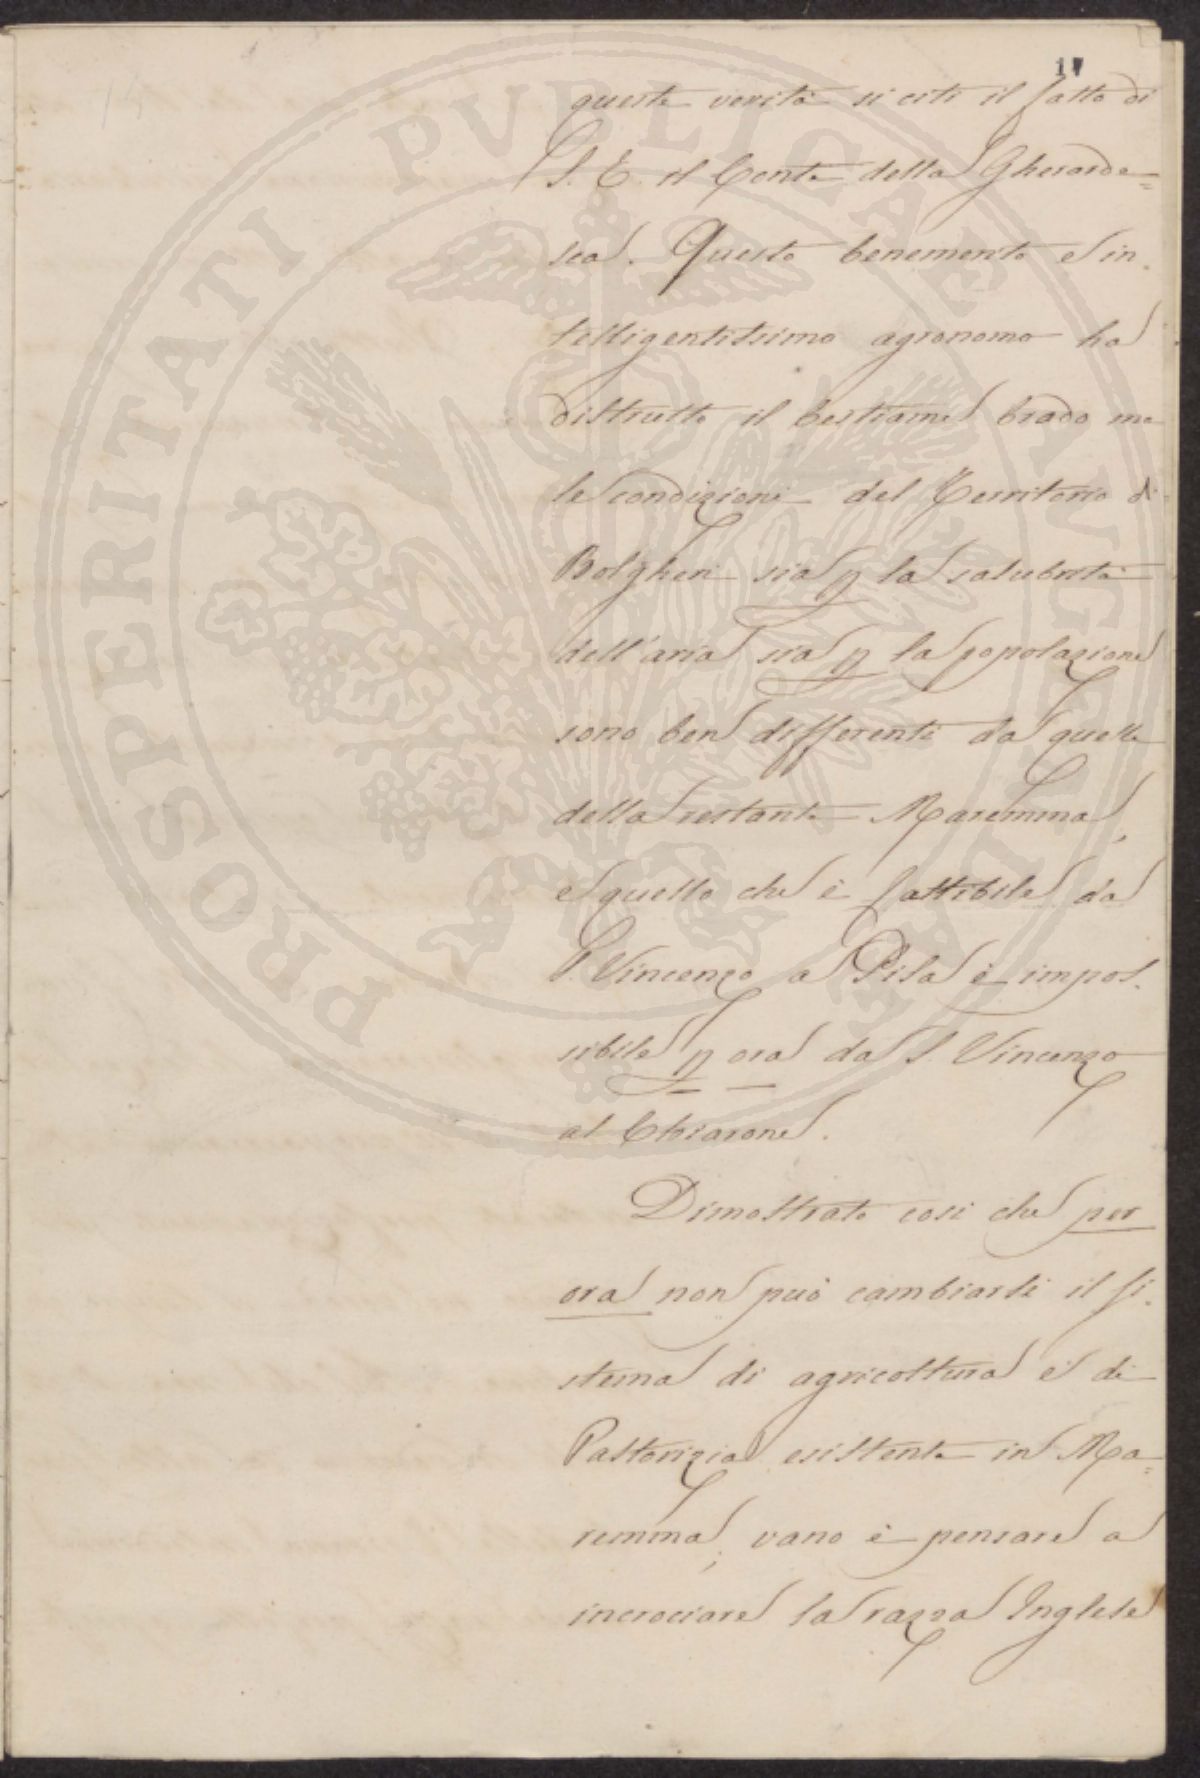 17
queste verità si citi il fatto di
S. E. il Conte della Gherarde=
sca. Questo benemerito e in-
telligentissimo agronomo ha
distrutto il bestiame brado ma
le condizioni del Territorio di
Bolgheri sia p la salubrità
dell'aria sia p la popolazione
sono ben differenti da quelle
della restante Maremma,
e quello che è fattibile da
S. Vincenzo a Pisa è impos-
sibile p ora da S. Vincenzo
al Chiarone.
Dimostrato così che per
ora non può cambiarsi il si-
stema di agricoltura e di
Pastorizia esistente in Ma=
remma; vano è pensare a
incrociare la razza Inglese
PROSPERITATI PVBLICAE AVGENDAE